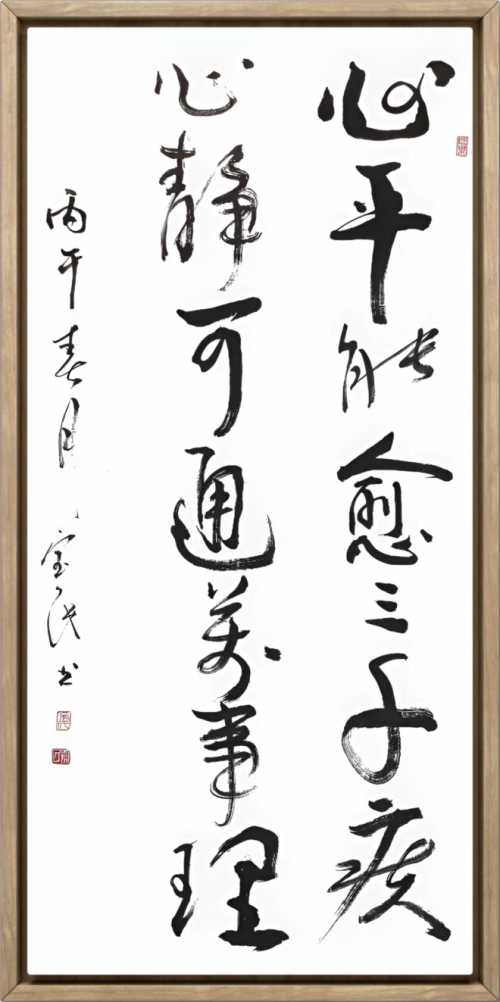 心平能愈三千疾
心静可通万事理
丙午春月
宝民书